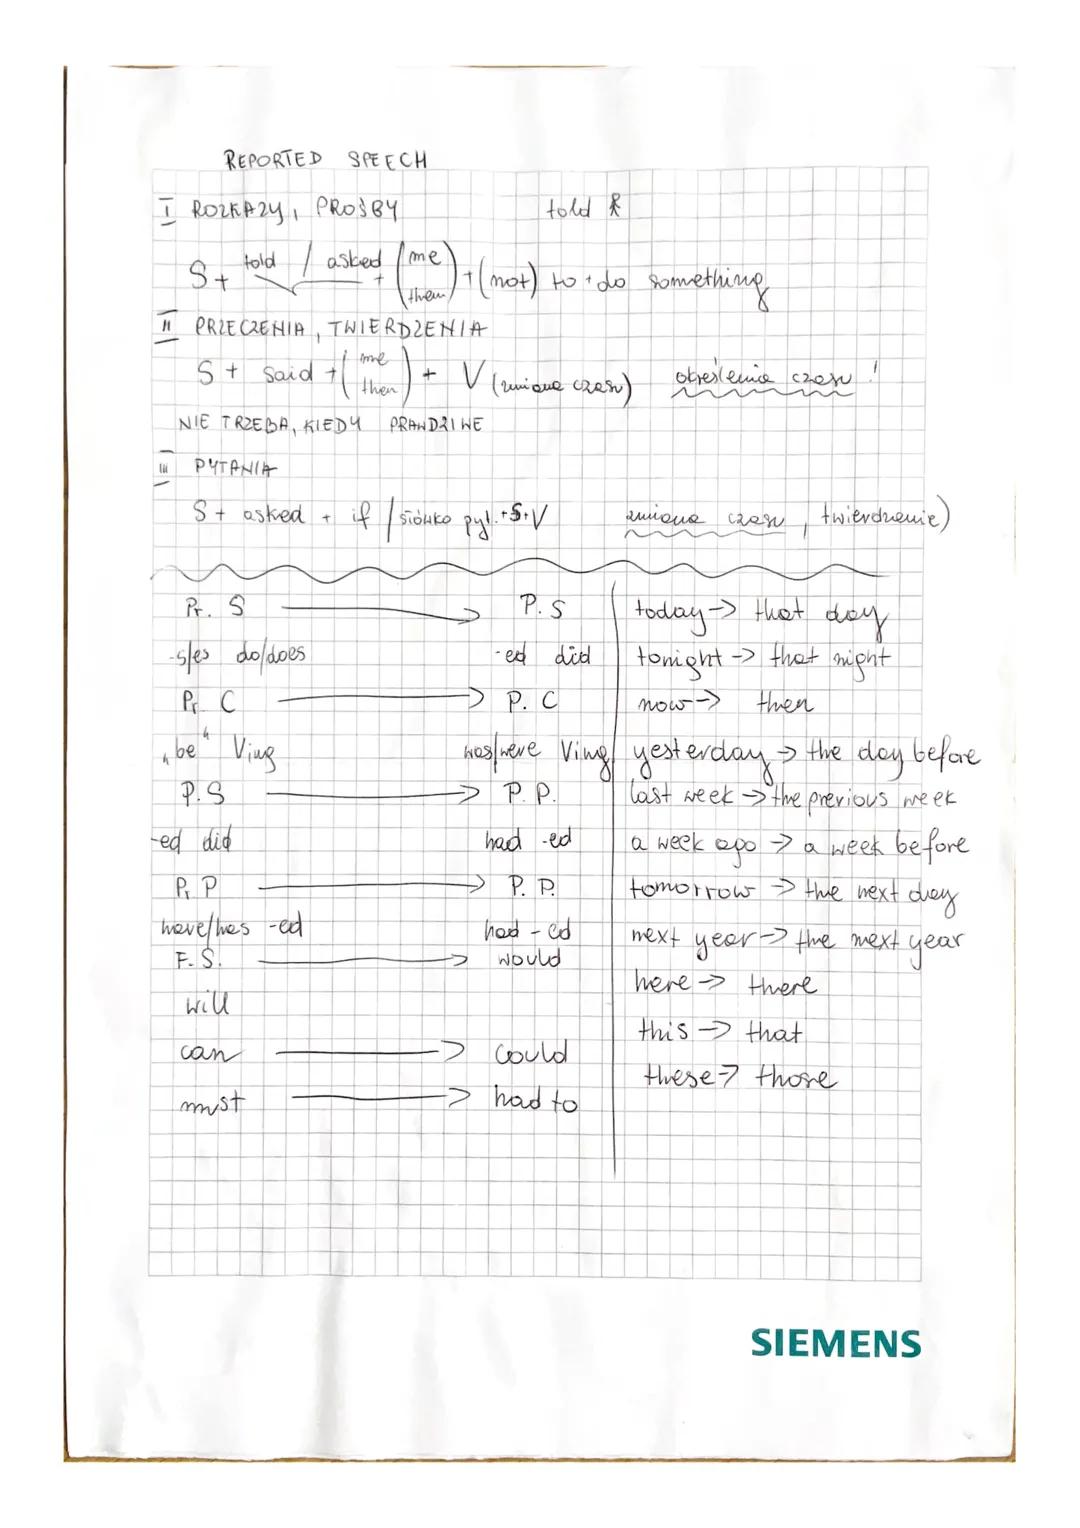 REPORTED SPEECH
I ROZKAZY, PROŚBY told
S + told / asked + (me them) + (not) to + do something
II PRZECZENIA, TWIERDZENIA
S + said + (me then) + V (zmiana czasu) określenia czasu!
NIE TRZEBA, KIEDY PRAWDZIWE
III PYTANIA
S + asked + if / słówko pyt. + S + V zmiana czasu, twierdzenie)
Pr. S → P.S
-s/es do/does -ed did
Pr. C → P. C
"be" Ving was/were Ving
P.S → P. P.
-ed did had -ed
Pr. P → P. P.
have/has -ed had -ed
F. S. → would
will
can → could
must → had to
today → that day
tonight → that night
now → then
yesterday → the day before
last week → the previous week
a week ago → a week before
tomorrow → the next day
next year → the next year
here → there
this → that
these → those
SIEMENS